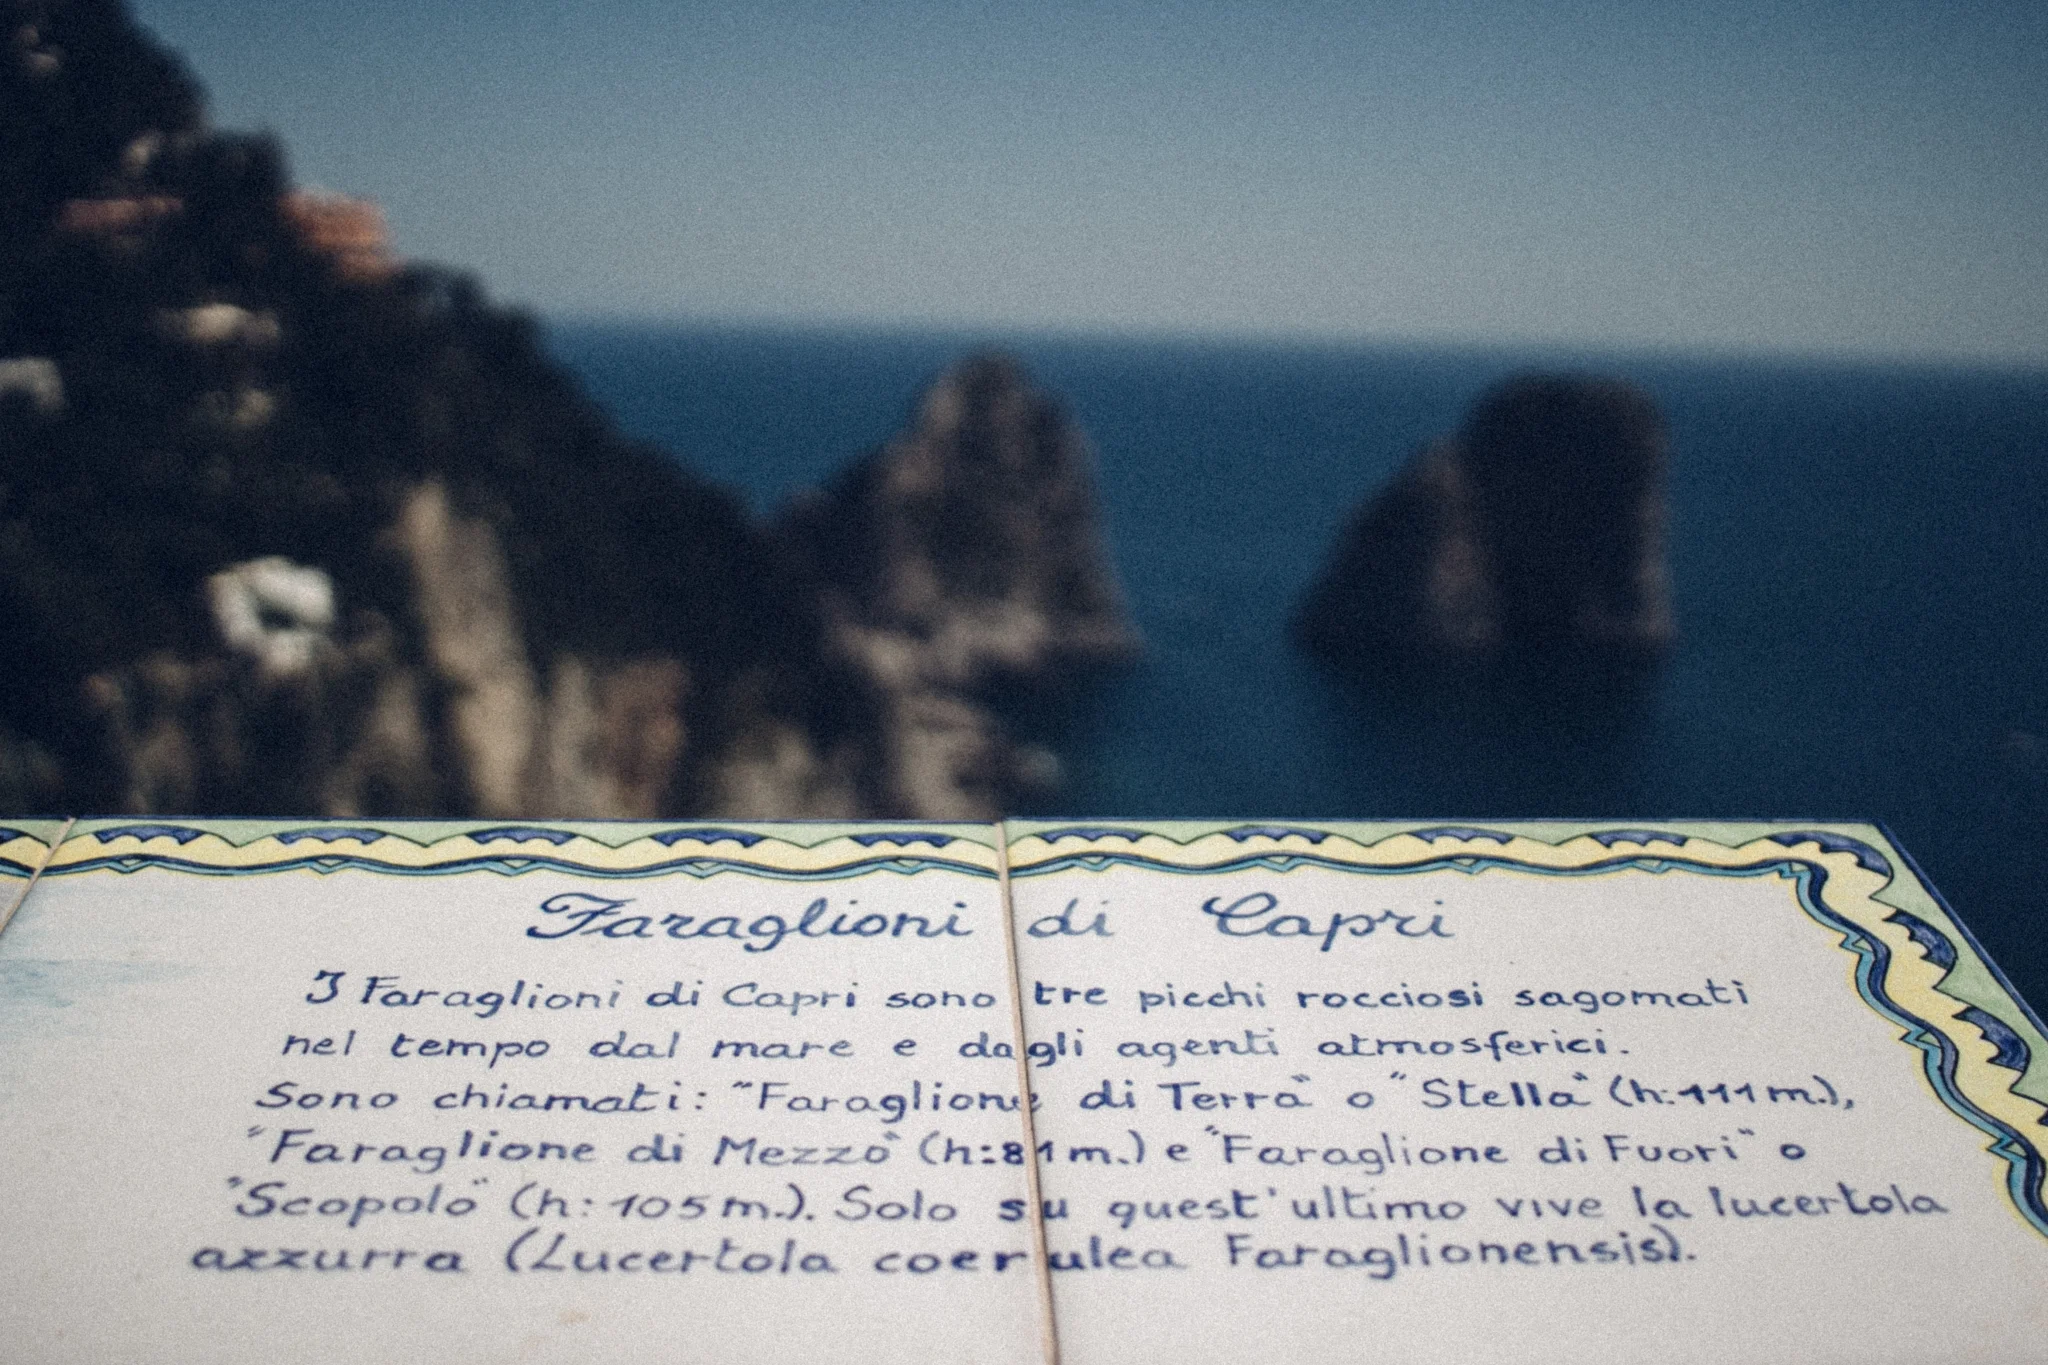 Faraglioni di Capri
I Faraglioni di Capri sono tre picchi rocciosi sagomati
nel tempo dal mare e dagli agenti atmosferici.
Sono chiamati: "Faraglione di Terra" o "Stella" (h: 111 m.),
"Faraglione di Mezzo" (h: 81 m.) e "Faraglione di Fuori" o
"Scopolo" (h: 105 m.). Solo su quest'ultimo vive la lucertola
azzurra (Lucertola coerulea Faraglionensis).